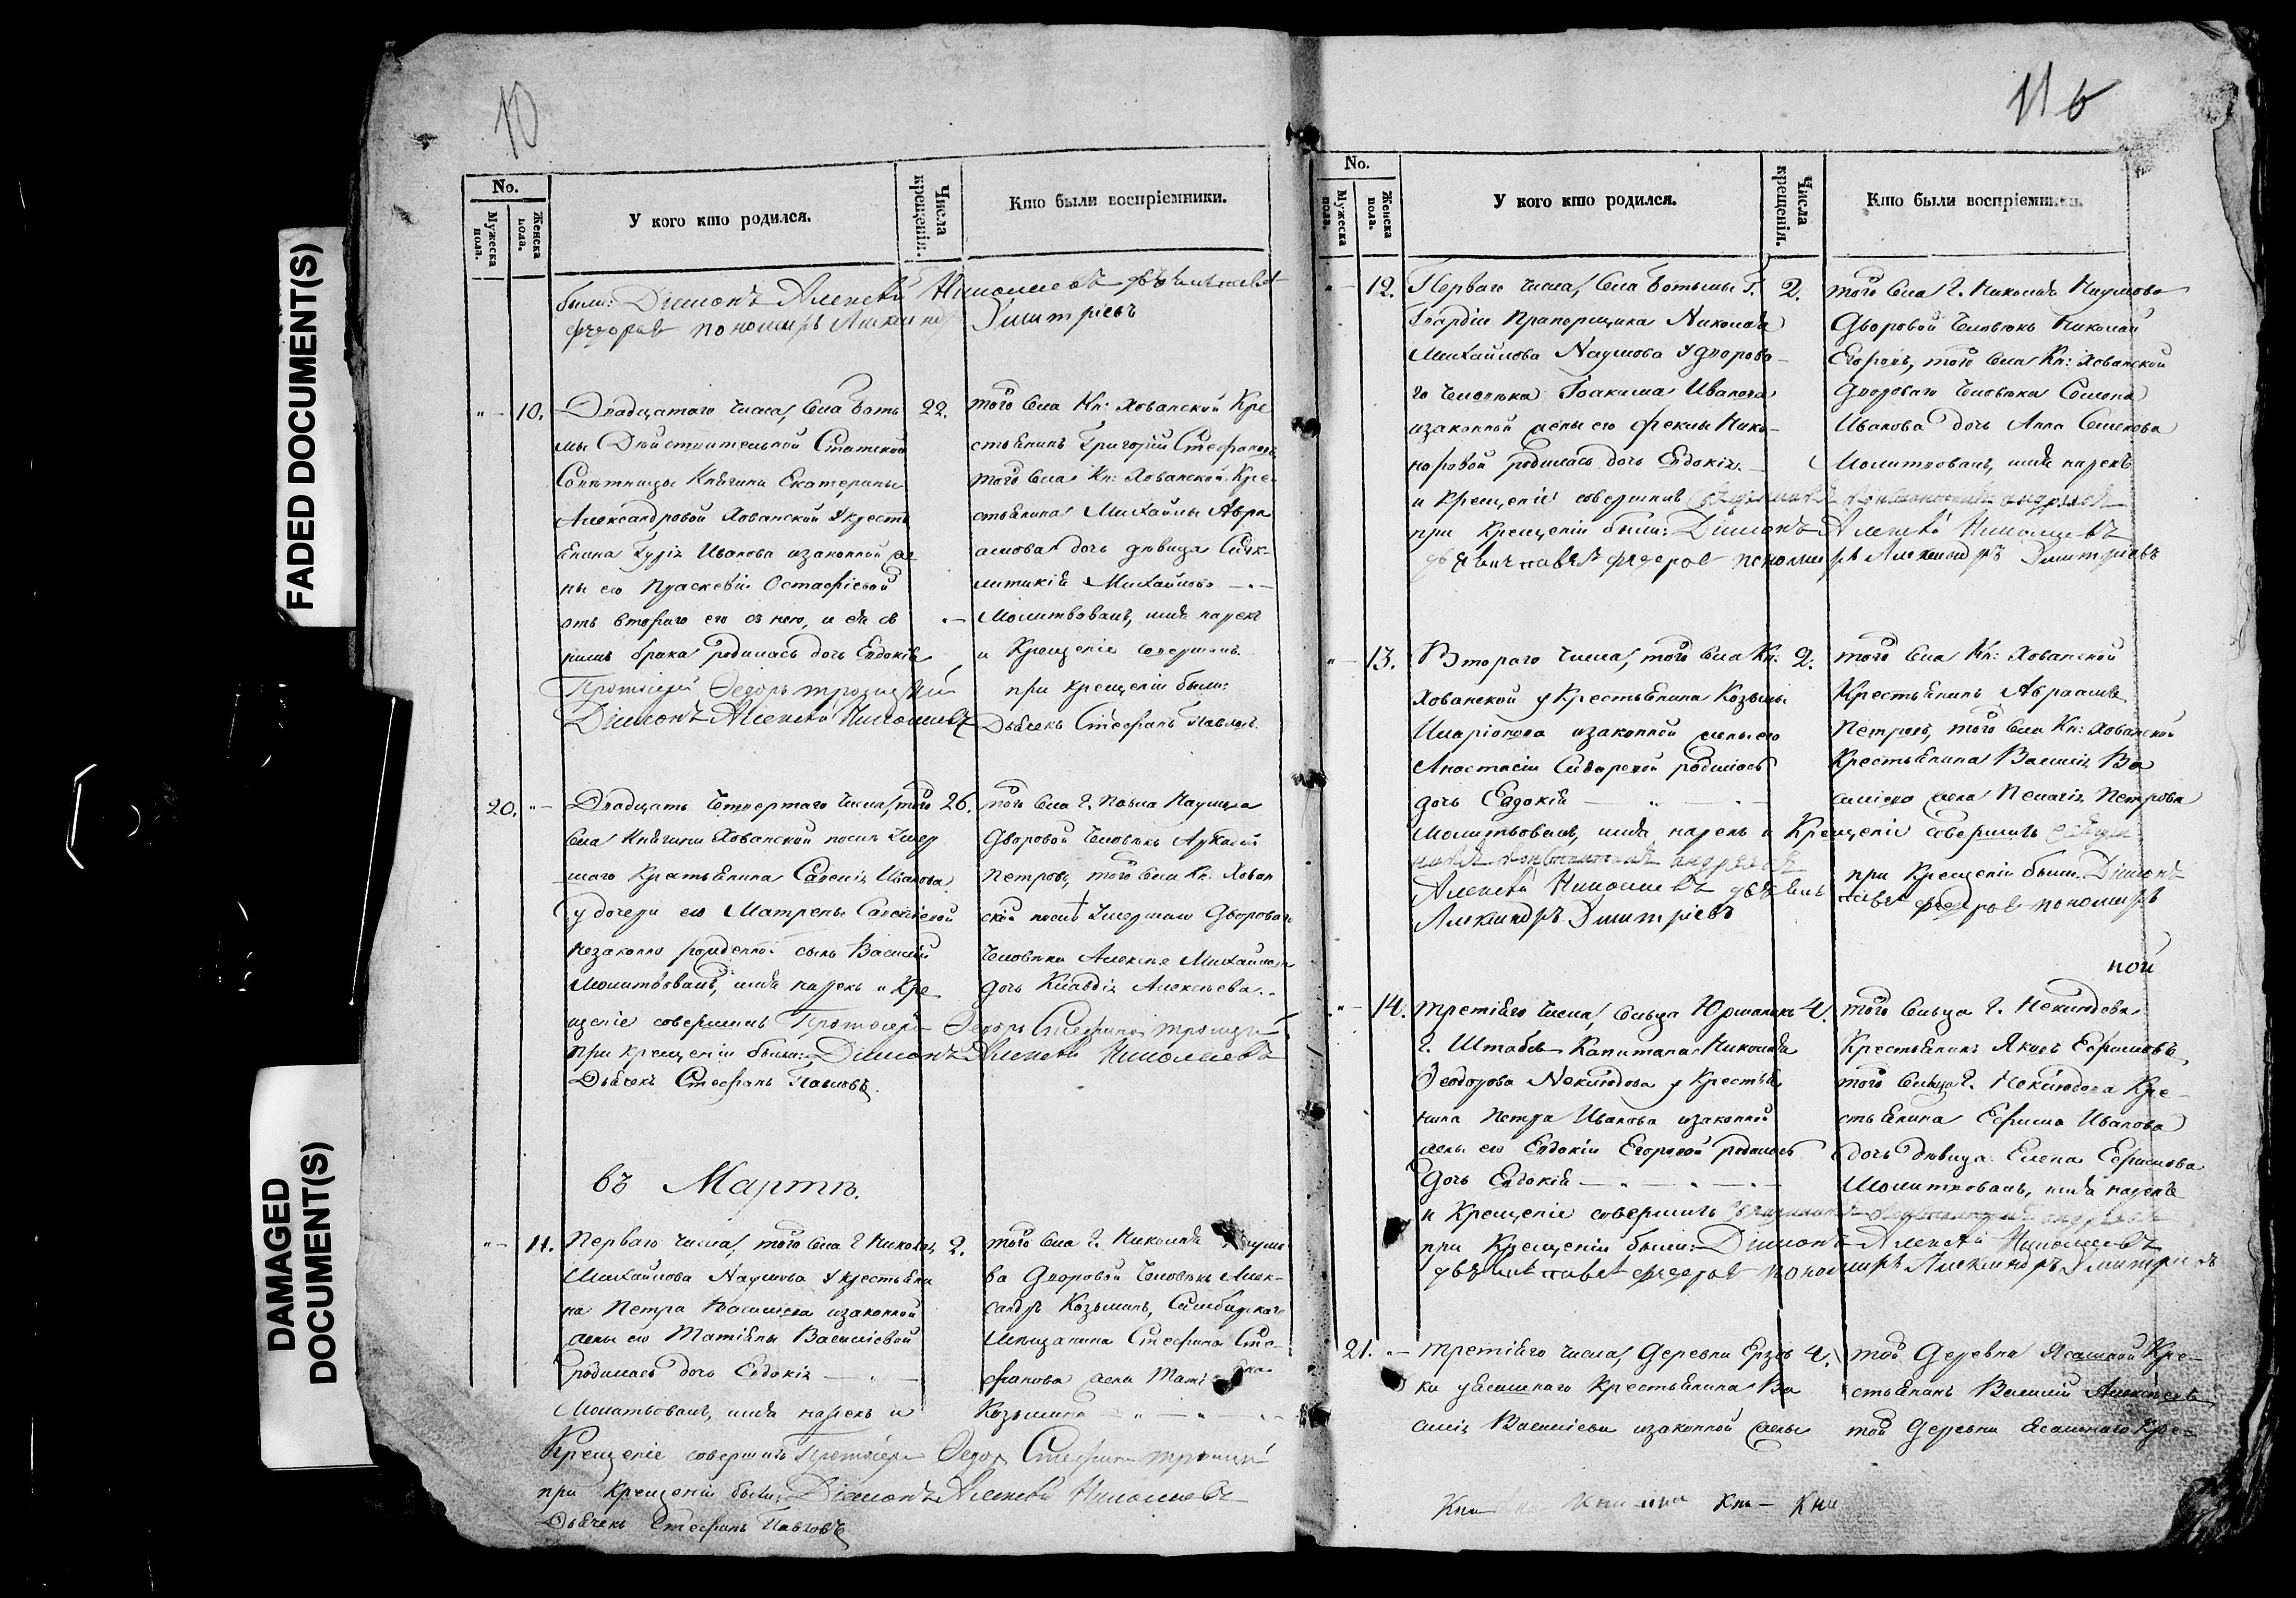 FADED DOCUMENT(S)
DAMAGED DOCUMENT(S)
10
No.
Мужеска пола.
Женска пола.
У кого кто родился.
Числа крещенія.
Кто были воспріемники.
были: Діаконъ Алексѣй Николаевъ
пономарь Дмитріевъ
10. Двадцатаго числа, села Боть
мы Дѣйствительной Статской
Совѣтницы Княгини Екатерины
Александровой Хованской у кресть
янина Иванова и законной же
ны его Праскевіи Остафіевой
отъ втораго его съ нею, и ея съ
нимъ брака родилась дочь Евдокія
Протоіерей Ѳедоръ Троицкій
Діаконъ Алексѣй Николаевъ
22. того села Кн: Хованской Кре
стьянинъ Григорій Стефановъ
того села Кн: Хованской Кре
стьянина Михайлы Авра
амова дочь девица Сиг
литикія Михайлова
Молитвовалъ, имя нарекъ
и Крещеніе совершилъ
при крещеніи были:
Дьячекъ Стефанъ Павловъ
20. Двадцать четвертаго числа, того
села Княгини Хованской послѣ умер
шаго Крестьянина Савелія Иванова
у дочери его Матрены Савельевой
незаконно рожденной сынъ Василій
Молитвовалъ, имя нарекъ и Кре
щеніе совершилъ Протоіерей Ѳедоръ Стефановъ Троицкій
при крещеніи были: Діаконъ Алексѣй Николаевъ
Дьячекъ Стефанъ Павловъ.
26. того села Г. Павла Наумова
Дворовой Человѣкъ Аркадій
Петровъ, того села Кн: Хован
ской послѣ умершаго Дворова
Человѣка Алексѣя Михайлова
дочь Клавдія Алексѣева.
въ Мартѣ.
11. Перваго числа, того села Г. Николая
Михайлова Наумова у крестьяни
на Петра Васильева и законной
жены его Татіяны Васильевой
родилась дочь Евдокія
Молитвовалъ, имя нарекъ и
Крещеніе совершилъ Протоіерей Ѳедоръ Стефановъ Троицкій
при крещеніи были: Діаконъ Алексѣй Николаевъ
Дьячекъ Стефанъ Павловъ
2. того села Г. Николая Наумо
ва Дворовой Человѣкъ Алек-
сандръ Козьминъ, Симбирскаго
Мещанина Стефана Сте-
фанова жена
Козьмина
11
No.
Мужеска пола.
Женска пола.
У кого кто родился.
Числа крещенія.
Кто были воспріемники.
12. Перваго числа, села Ботьмы Г.
Гвардіи Прапорщика Николая
Михайлова Наумова у дворова-
го человѣка Іоакима Иванова
и законной жены его Феклы Ника-
норовой родилась дочь Евдокія.
и крещеніе совершилъ Священникъ Константинъ Андреевъ
при крещеніи были: Діаконъ Алексѣй Николаевъ
дьячекъ Павелъ Федоровъ пономарь Александръ Дмитріевъ
2. того села Г. Николая Наумова
Дворовой Человѣкъ Николай
Егоровъ, того села Кн: Хованской
дворового Человѣка Семена
Иванова дочь Анна Семенова
Молитвовалъ, имя нарекъ
13. Втораго числа, того села Кн:
Хованской у Крестьянина Козьмы
Иларіонова и законной жены его
Анастасіи Сидоровой родилась
дочь Евдокія
Молитвовалъ, имя нарекъ и Крещеніе совершилъ Священ
никъ Константинъ Андреевъ
при Крещеніи были: Діаконъ
Алексѣй Николаевъ дьячекъ Павелъ Федоровъ пономарь
Александръ Дмитріевъ
2. того села Кн: Хованской
Крестьянинъ Авраамъ
Петровъ, того села Кн: Хованской
Крестьянина Василія Ва
сильева жена Пелагія Петрова
ной
14. третіяго числа, сельца Юрманокъ
Г. Штабсъ Капитана Николая
Ѳеодорова Неклюдова у Крестья
нина Петра Иванова и законной
жены его Евдокіи Егоровой родилась
дочь Евдокія
и Крещеніе совершилъ Священникъ Константинъ Андреевъ
при Крещеніи были: Діаконъ Алексѣй Николаевъ
дьячекъ Павелъ Федоровъ пономарь Александръ Дмитріевъ
4. того сельца Г. Неклюдова
Крестьянинъ Яковъ Ефимовъ
того сельца Г. Неклюдова Кре-
стьянина Ефима Иванова
дочь девица Елена Ефимова
Молитвовалъ, имя нарекъ
21. третіяго числа, деревни Ерзов
ки у ясашнаго Крестьянина Ва
силія Васильева и законной жены
4. той Деревни Ясашной Кре-
стьянинъ Василій Алексѣевъ
той Деревни Ясашнаго Кре-